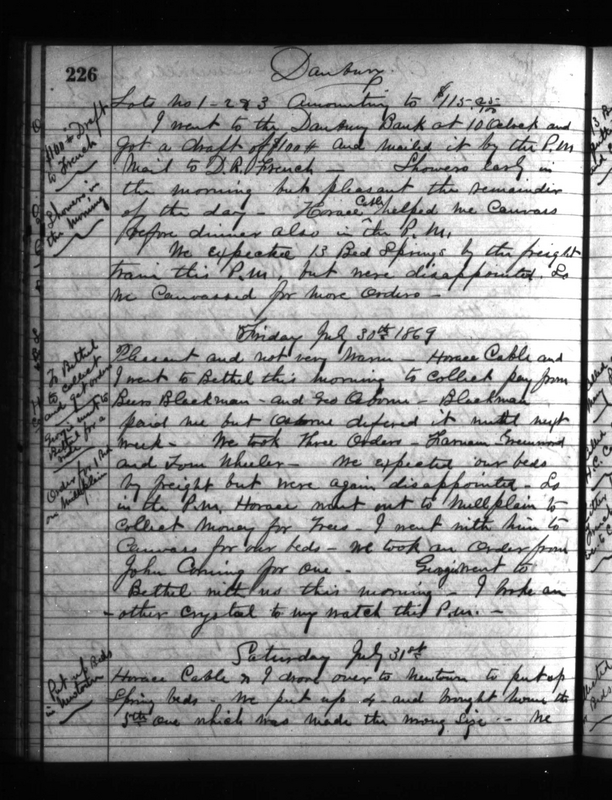 226
Danbury
Lots No 1-2 & 3 Amounting to $115.95/100
I went to the Danbury Bank at 10 Oclock and
got a draft of $100 & and mailed it by the P.M
Mail to D.R. French — Showers early in
the morning but pleasant the remainder
of the day - Horace Cable helped me Canvass
before dinner also in the P.M.
We expected 13 Bed Springs by the freight
train this P.M. but were disappointed. So
we Canvassed for more Orders -
Friday July 30th 1869
Pleasant and not very warm - Horace Cable and
I went to Bethel this morning to Collect pay from
Beers Blackman - and Geo Osborne - Blackman
paid me but Osborne defered it until next
week - We took three Orders -
and Tom Wheeler - We expected our beds
by freight but were again disappointed - So
in the P.M, Horace went out to Millplain to
Collect Money for Trees - I went with him to
Canvass for our beds - we took an Order from
John Corning for one - went to
Bethel with us this morning - I broke an
-other Crystal to my watch this P.M. -
Saturday July 31st
Horace Cable & I drove over to Newtown to put up
Spring beds - We put up 4 and brought home the
5th One which was made the wrong Size -- We
$100 & Draft
to French
Showers in
the morning
To Bethel
to Collect
and get orders
went to
Bethel for a
ride
Order for 1 Bed
on Millplain
Put up Beds
in Newtown